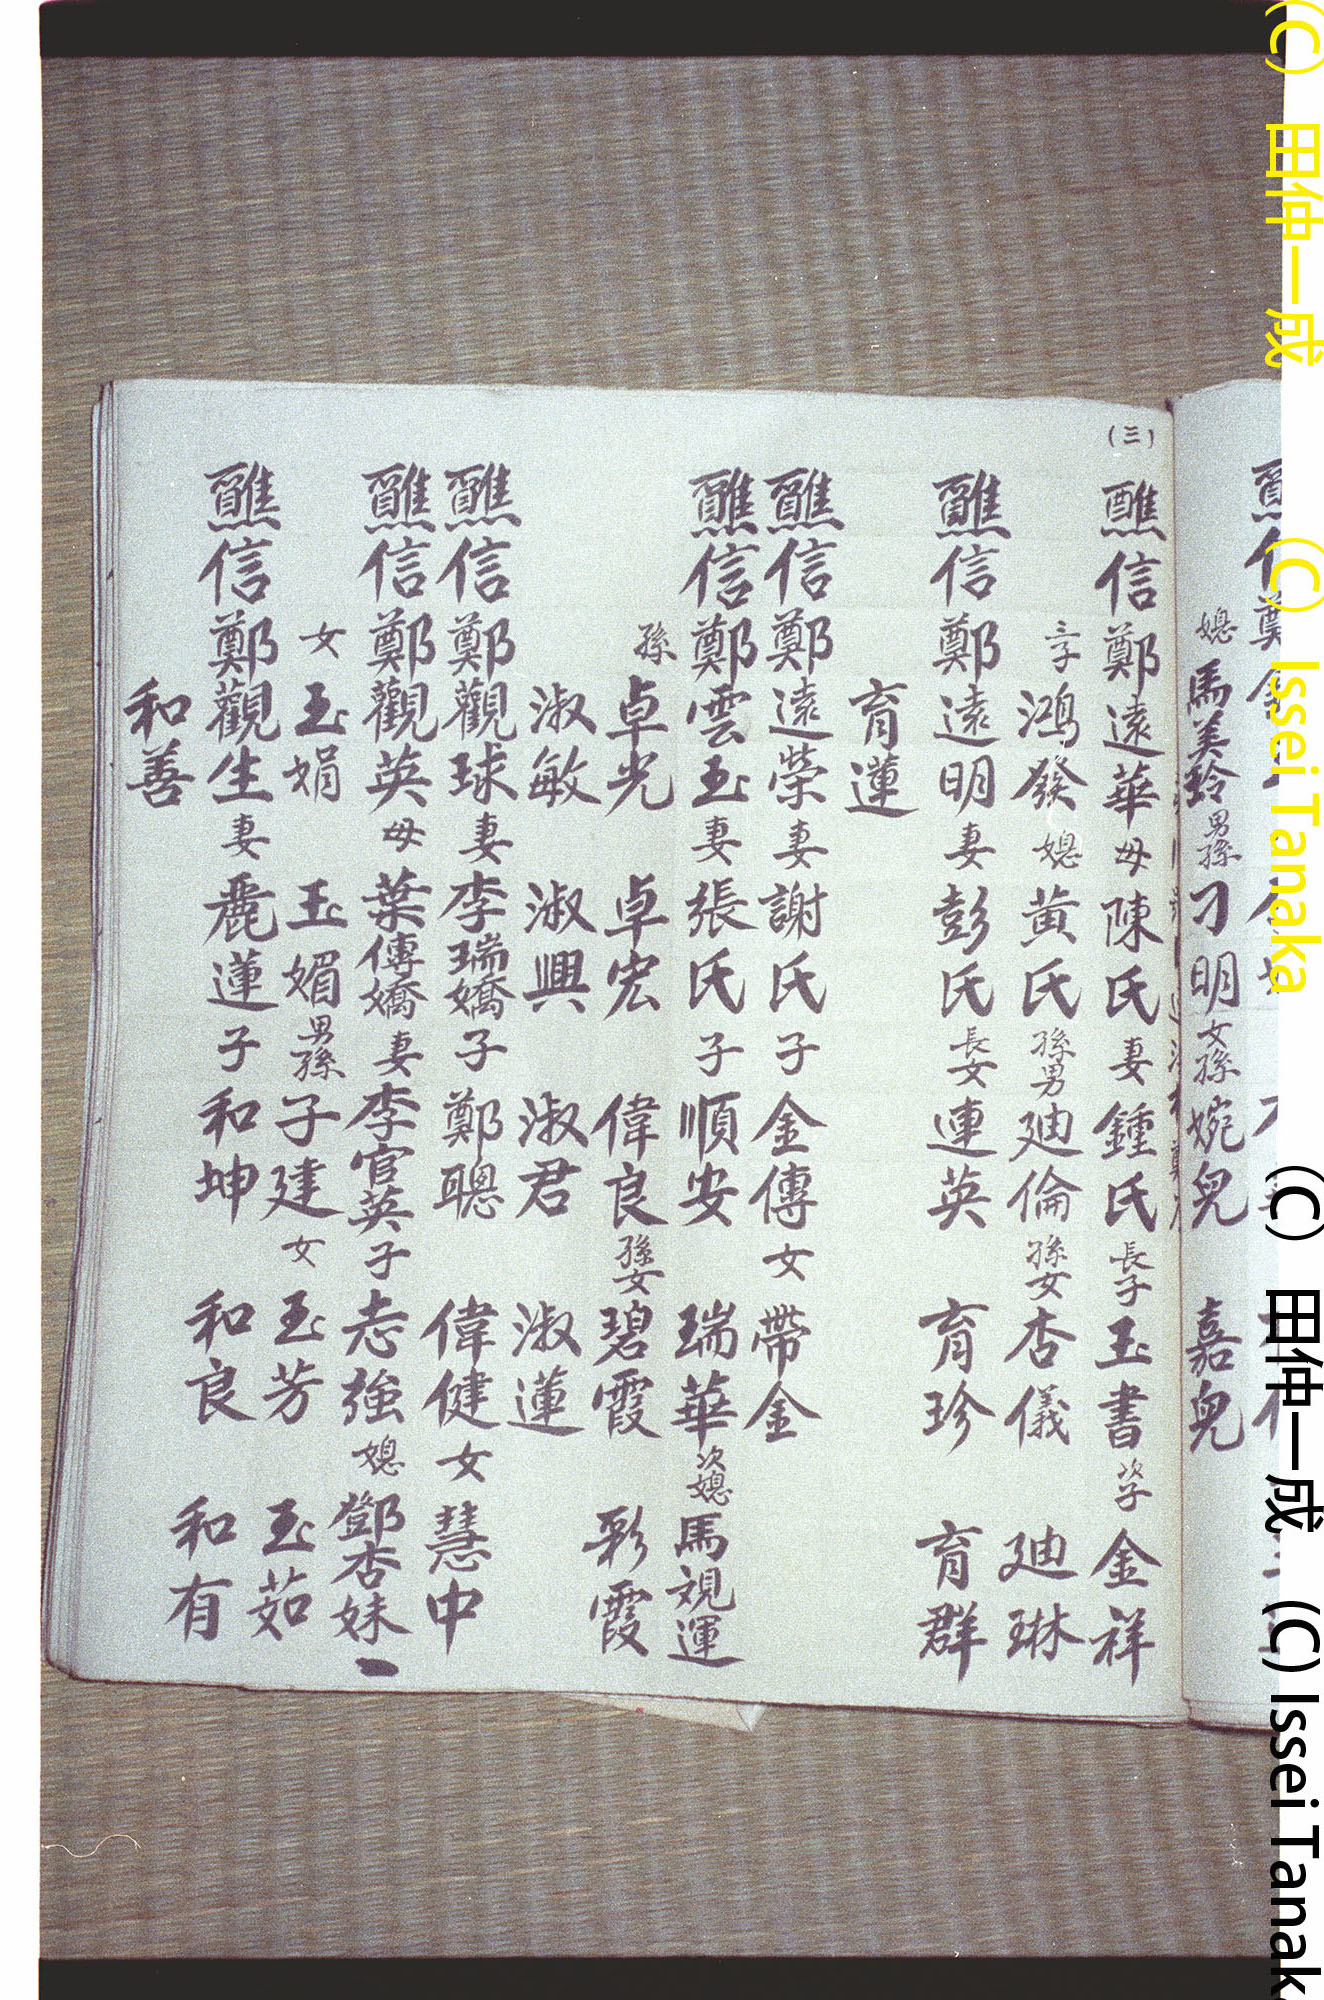 媳馬美玲男孫刁明女孫婉兒 嘉兒
(三)
醮信鄭遠華母陳氏妻鍾氏長子玉書次子金祥
三子鴻發媳黃氏孫男廸倫孫女杏儀 廸琳
醮信鄭遠明妻彭氏長女連英 育珍 育群
育蓮
醮信鄭遠榮妻謝氏子金傳女帶金
醮信鄭雲玉妻張氏子順安 瑞華次媳馬覌運
孫卓光 卓宏 偉良孫女碧霞 彩霞
淑敏 淑興 淑君 淑蓮
醮信鄭觀球妻李瑞嬌子鄭聰 偉健女慧中
醮信鄭觀英母葉傳嬌妻李官英子志強媳鄧杏妹
女玉娟 玉媚男孫子建女玉芳 玉茹
醮信鄭觀生妻麗蓮子和坤 和良 和有
和善
(C) 田仲一成 (C) Issei Tanaka
(C) 田仲一成 (C) Issei Tanak